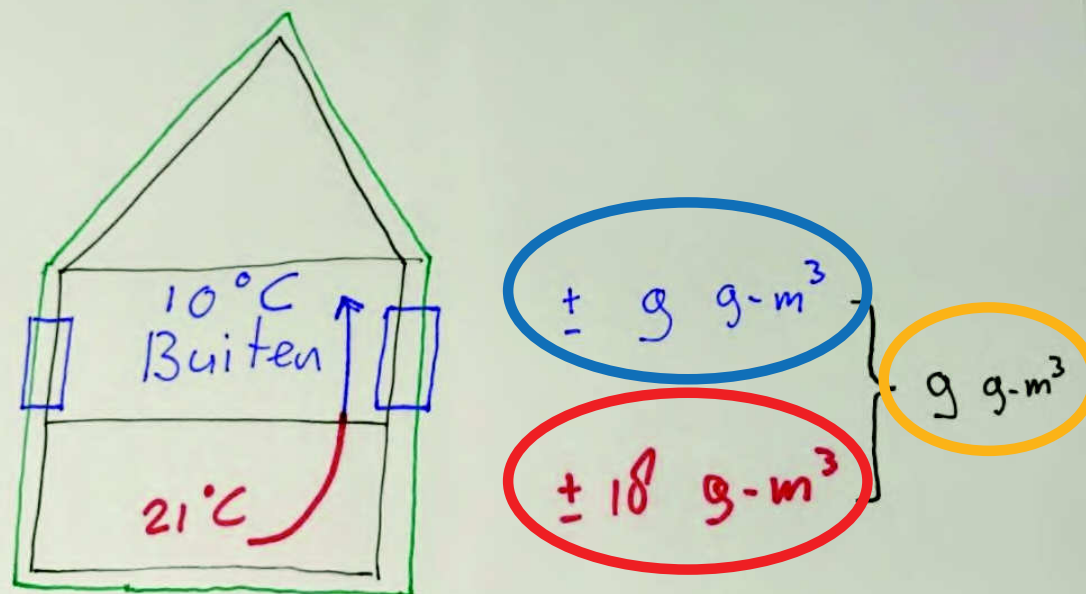 10°C
Buiten
21°C
± 9 g-m³
± 18 g-m³
9 g-m³